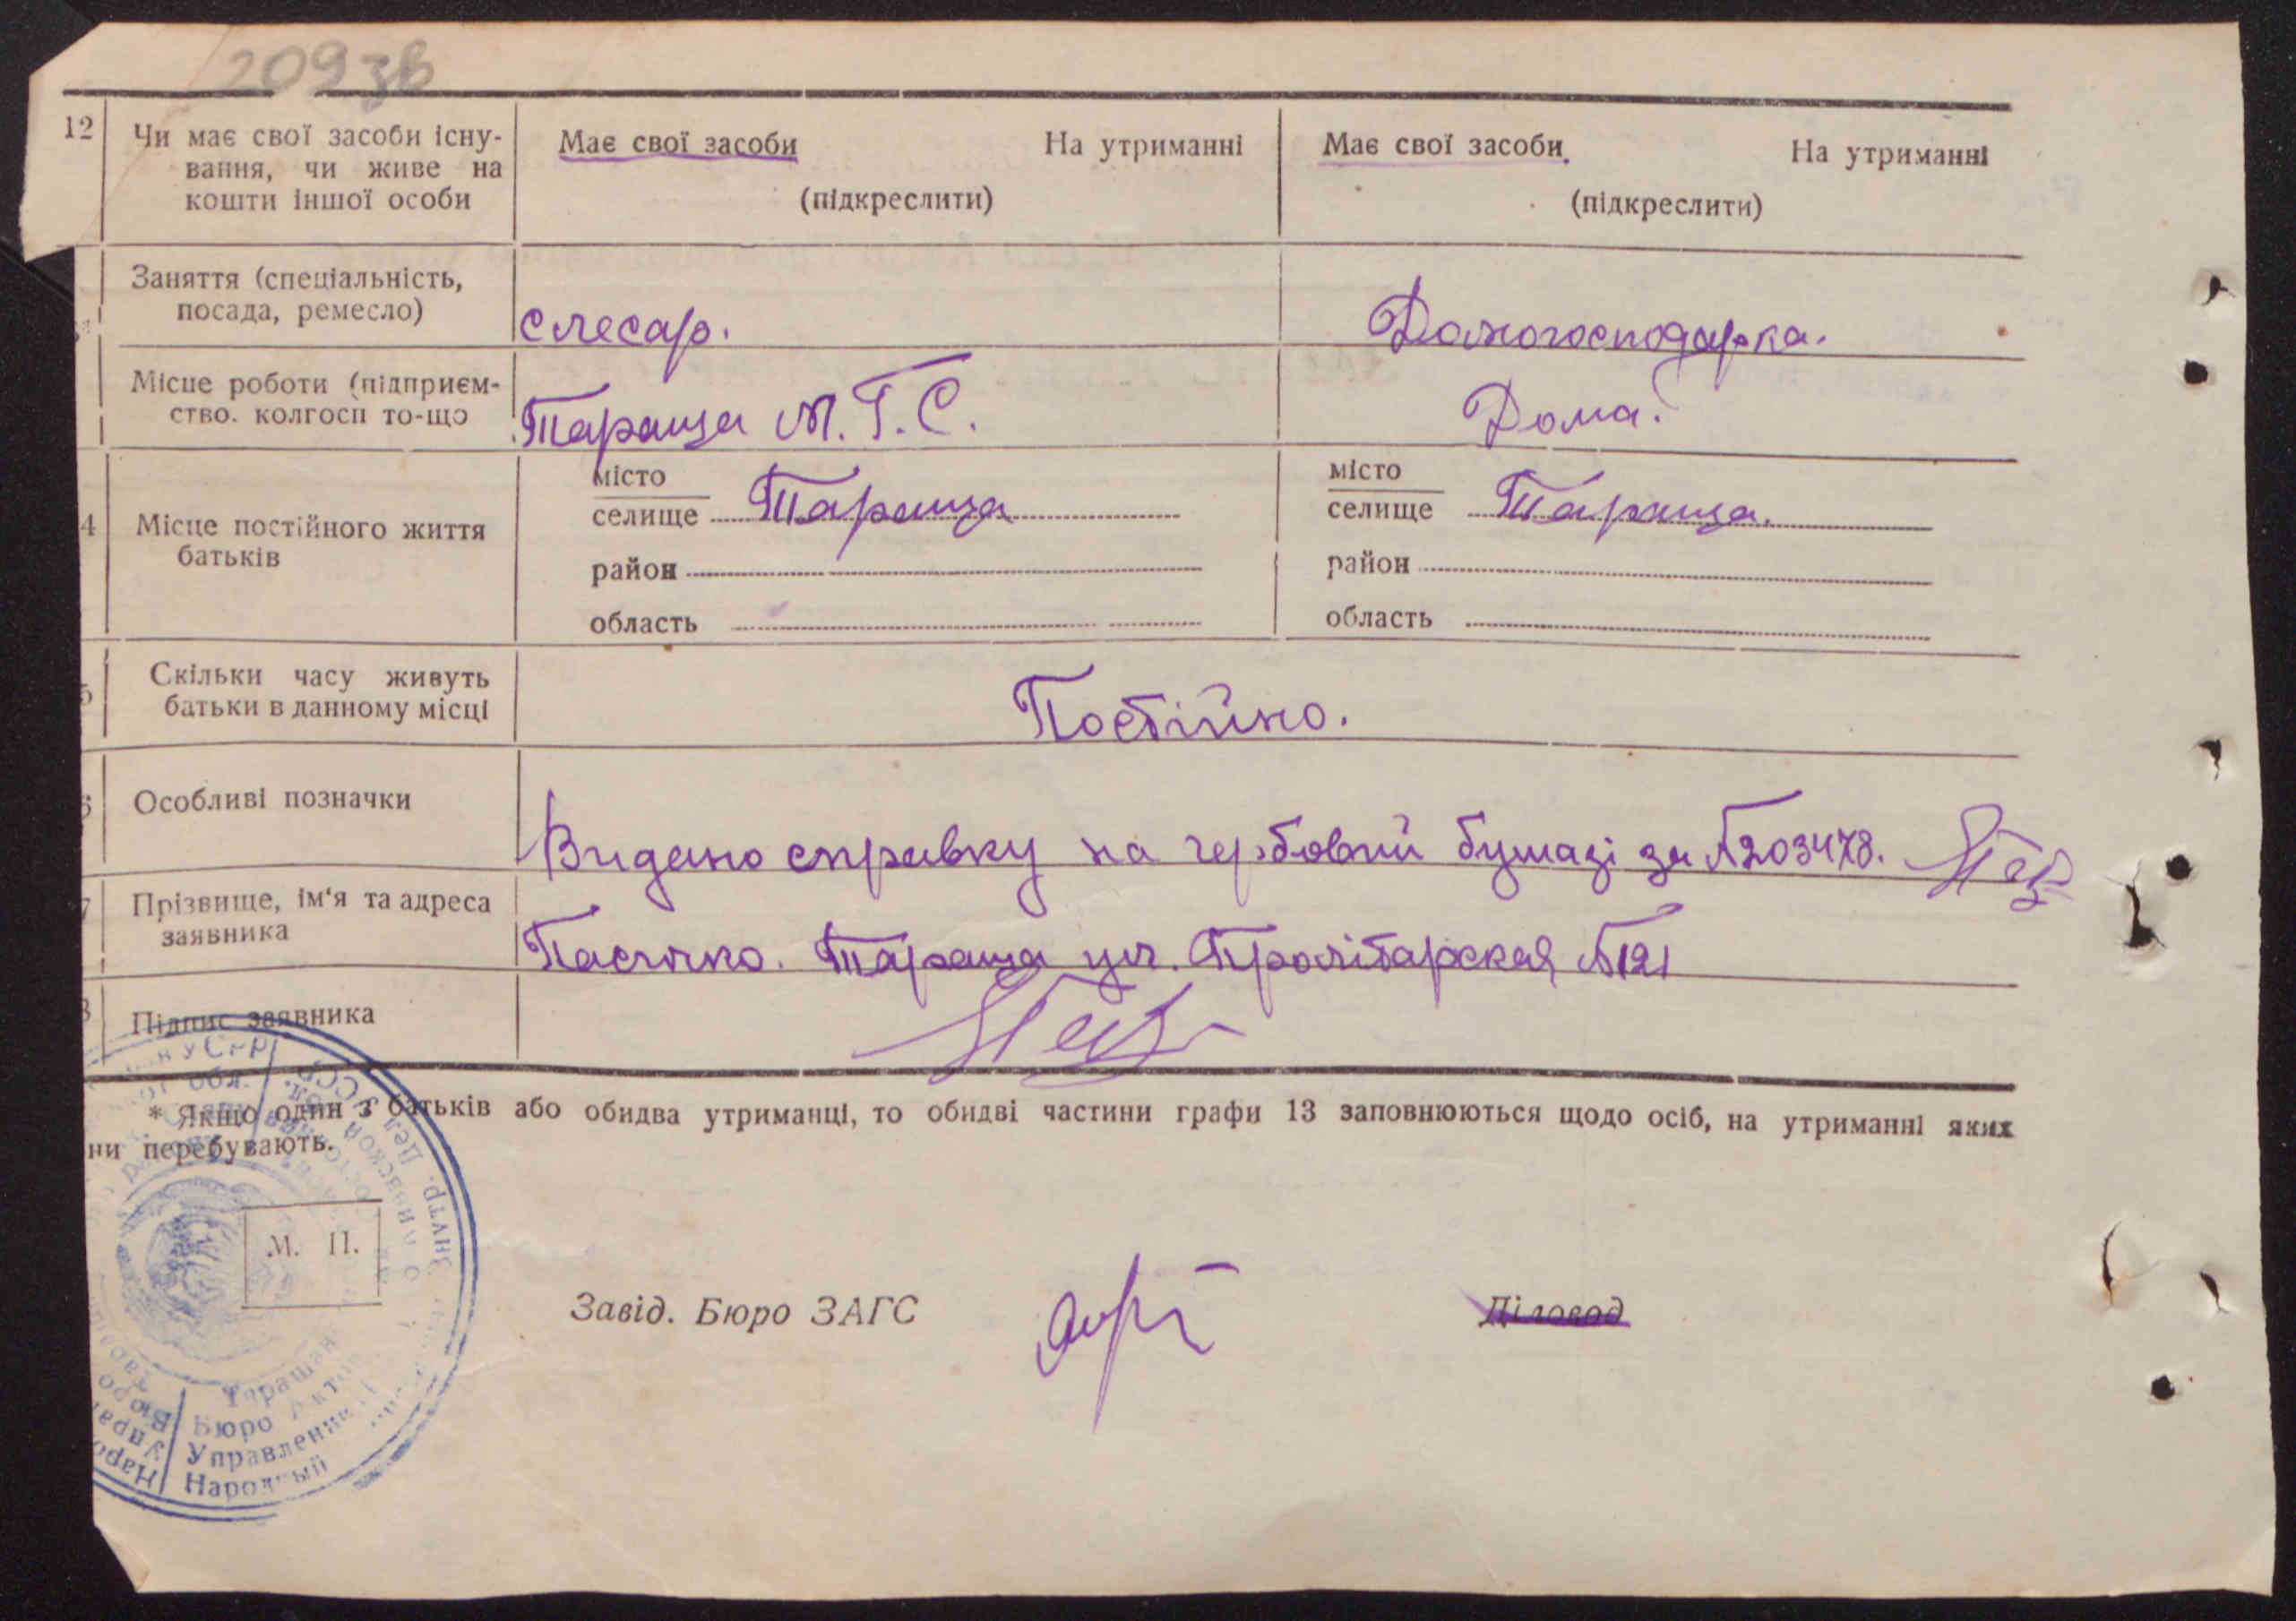 209зв
12 Чи має свої засоби існу-
вання, чи живе на
кошти іншої особи
Має свої засоби На утриманні
(підкреслити)
Має свої засоби На утриманні
(підкреслити)
Заняття (спеціальність,
посада, ремесло)
слесар.
Домогосподарка.
Місце роботи (підприєм-
ство. колгосп то-що
Тараща М.Т.С.
Дома.
4 Місце постійного життя
батьків
місто
селище Тараща
район
область
місто
селище Тараща.
район
область
5 Скільки часу живуть
батьки в данному місці
Постійно.
6 Особливі позначки
Видано справку на гербовий бумазі за №203478.
7 Прізвище, ім'я та адреса
заявника
Тараща ул. Пролітарская №121
8 Підпис заявника
* Якщо один з батьків або обидва утриманці, то обидві частини графи 13 заповнюються щодо осіб, на утриманні яких
ни перебувають.
М. П.
Завід. Бюро ЗАГС
Діловод
Бюро
Управлении
Народный